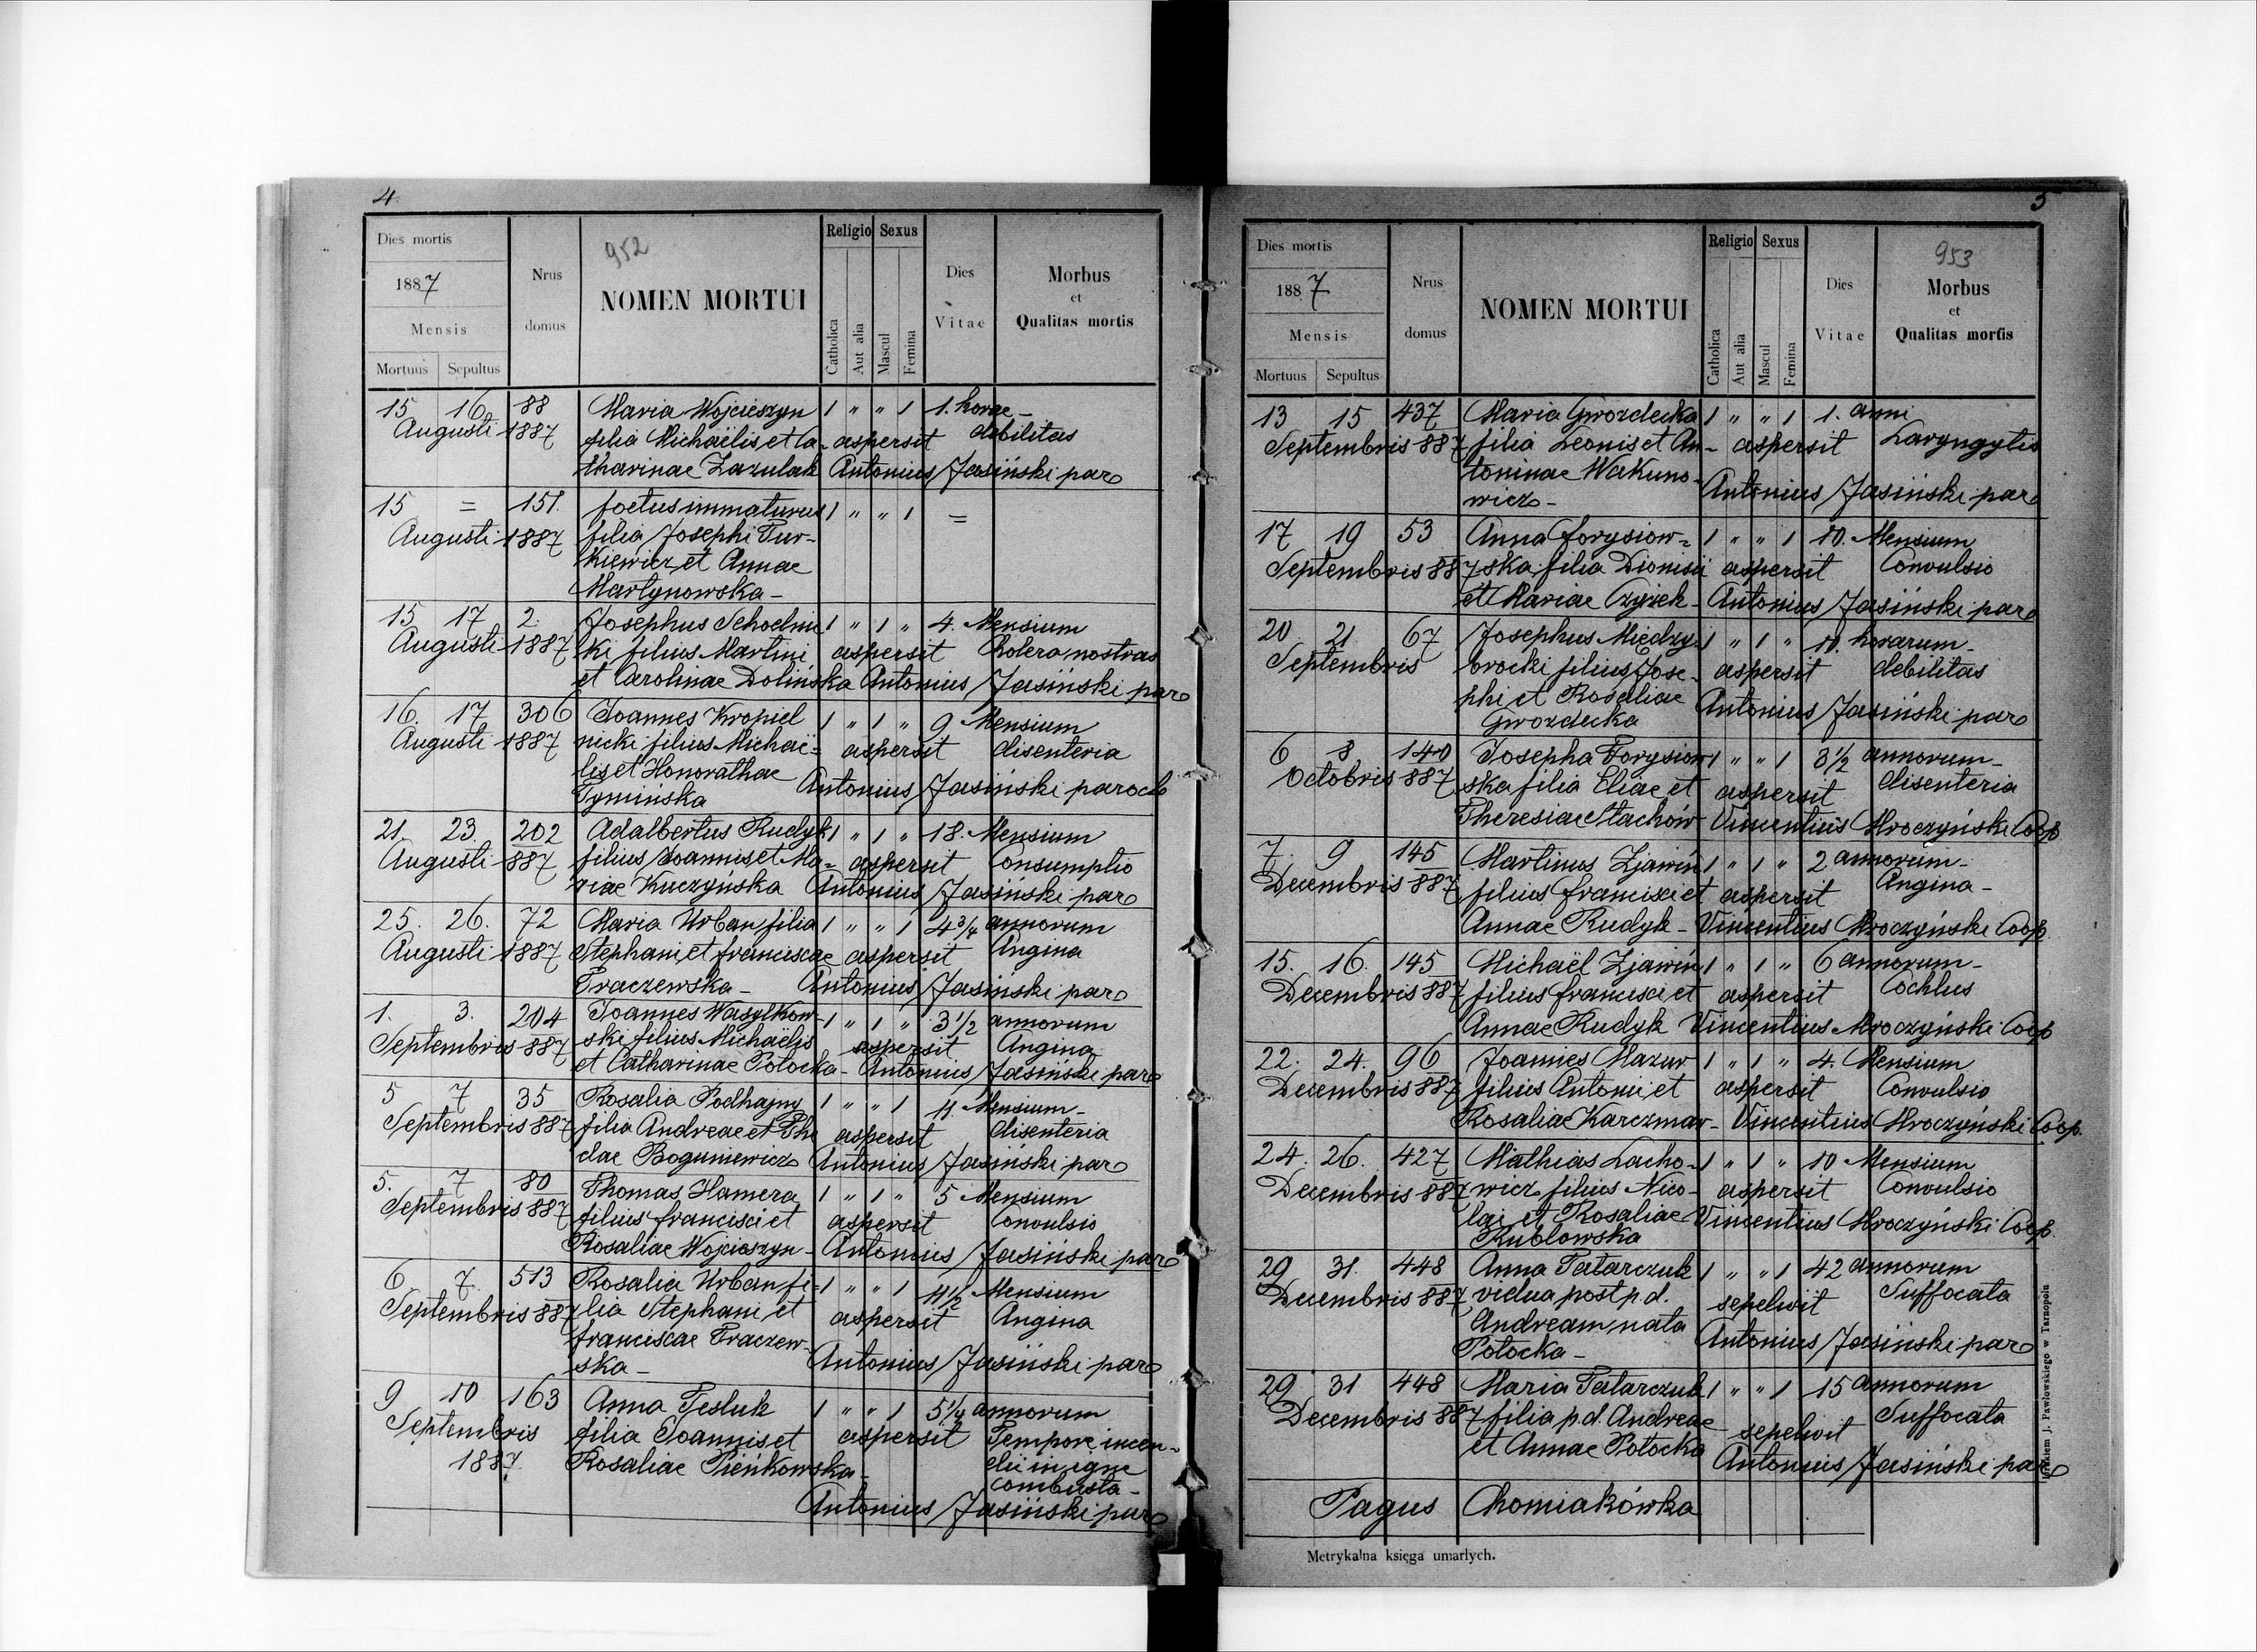 4
Dies mortis
1887
Mensis
Mortuus Sepultus
Nrus domus
952
NOMEN MORTUI
Religio Sexus
Catholica Aut alia Mascul Femina
Dies Vitae
Morbus
et
Qualitas mortis
15 16 88 Maria Wojcieszyn 1 " " 1 1. horae -
Augusti 1887 filia Michaëlis et Ca- aspersit debilitas
tharinae Zazulak Antonius Jasiński paro
15 = 151. foetus immaturus 1 " " 1 =
Augusti 1887 filia Josephi Tur-
kiewicz et Annae
Martynowska -
15 17 2. Josephus 1 " 1 " 4. Mensium
Augusti 1887 ki filius Martini aspersit Cholera nostras
et Carolinae Dolińska Antonius Jasiński paro
16. 17 306 Joannes Kropiel 1 " 1 " 9 Mensium
Augusti 1887 nicki filius Michaë= aspersit disenteria
lis et Honorathae Antonius Jasiński paroch
Tymińska
21. 23 202 Adalbertus Rudyk 1 " 1 " 18. Mensium
Augusti 887 filius Joannis et Ma= aspersit Consumptio
riae Kuczyńska Antonius Jasiński paro
25. 26. 72 Maria Urban filia 1 " " 1 4 3/4 annorum
Augusti 1887 Stephani et franciscae aspersit Angina
Traczewska - Antonius Jasiński paro
1. 3. 204 Joannes Wasylkow- 1 " 1 " 3 1/2 annorum
Septembris 887 ski filius Michaëlis aspersit Angina
et Catharinae Potocka - Antonius Jasiński paro
5 7 35 Rosalia Podhajny 1 " " 1 11 Mensium -
Septembris 887 filia Andreae et The aspersit disenteria
clae Boguniewicz Antonius Jasiński paro
5. 7 80 Thomas Hamera 1 " 1 " 5 Mensium
Septembris 887 filius francisci et aspersit Convulsio
Rosaliae Wojcieszyn - Antonius Jasiński paro
6 7. 513 Rosalia Urban fi= 1 " " 1 11 1/2 Mensium
Septembris 887 lia Stephani et aspersit Angina
franciscae Traczew-
ska - Antonius Jasiński paro
9 10 163 Anna Tesluk 1 " " 1 5 1/4 annorum
Septembris filia Joannis et aspersit Tempore incen-
1887. Rosaliae Pieńkowska - dii in igne
combusta -
Antonius Jasiński paro
5
Dies mortis
1887
Mensis
Mortuus Sepultus
Nrus domus
NOMEN MORTUI
Religio Sexus
Catholica Aut alia Mascul Femina
Dies Vitae
953
Morbus
et
Qualitas mortis
13 15 437 Maria Gwozdecka 1 " " 1 1. anni
Septembris 887 filia Leonis et An- aspersit Laryngytis
toninae Wakuno-
wicz - Antonius Jasiński paro
17 19 53 Anna forysiow= 1 " " 1 10. Mensium
Septembris 887 ska filia Dionisii aspersit Convulsio
et Mariae Czyżek - Antonius Jasiński paro
20 21. 67 Josephus Miedzy 1 " 1 " 10. horarum -
Septembris brocki filius Jose- aspersit debilitas
phi et Rosaliae Antonius Jasiński paro
Gwozdecka
6 8 140 Josepha Forysiow 1 " " 1 3 1/2 annorum -
Octobris 887 ska filia Eliae et aspersit disenteria
Theresiae Stachów Vincentius Mroczyński Coop
7. 9 145 Martinus Zjawin 1 " 1 " 2 annorum -
Decembris 887 filius francisci et aspersit Angina -
Annae Rudyk - Vincentius Mroczyński Coop
15. 16. 145 Michaël Zjawin 1 " 1 " 6 annorum -
Decembris 887 filius francisci et aspersit Cochlus
Annae Rudyk Vincentius Mroczyński Coop
22. 24. 96 Joannes Mazur 1 " 1 " 4. Mensium
Decembris 887 filius Antoni et aspersit Convulsio
Rosaliae Karczmar - Vincentius Mroczyński Coop.
24. 26. 427 Mathias Lacho- 1 " 1 " 10 Mensium
Decembris 887 wicz filius Nico- aspersit Convulsio
lai et Rosaliae Vincentius Mroczyński Coop.
Rublowska
29 31. 448 Anna Tatarczuk 1 " " 1 42 annorum
Decembris 887 vidua post p.d. sepelivit Suffocata
Andream, nata Antonius Jasiński paro
Potocka -
29 31 448 Maria Tatarczuk 1 " " 1 15 annorum
Decembris 887 filia p.d. Andreae sepelivit Suffocata
et Annae Potocka Antonius Jasiński paro
Pagus Chomiakówka
Metrykalna księga umarłych.
Drukiem J. Pawłowskiego w Tarnopolu